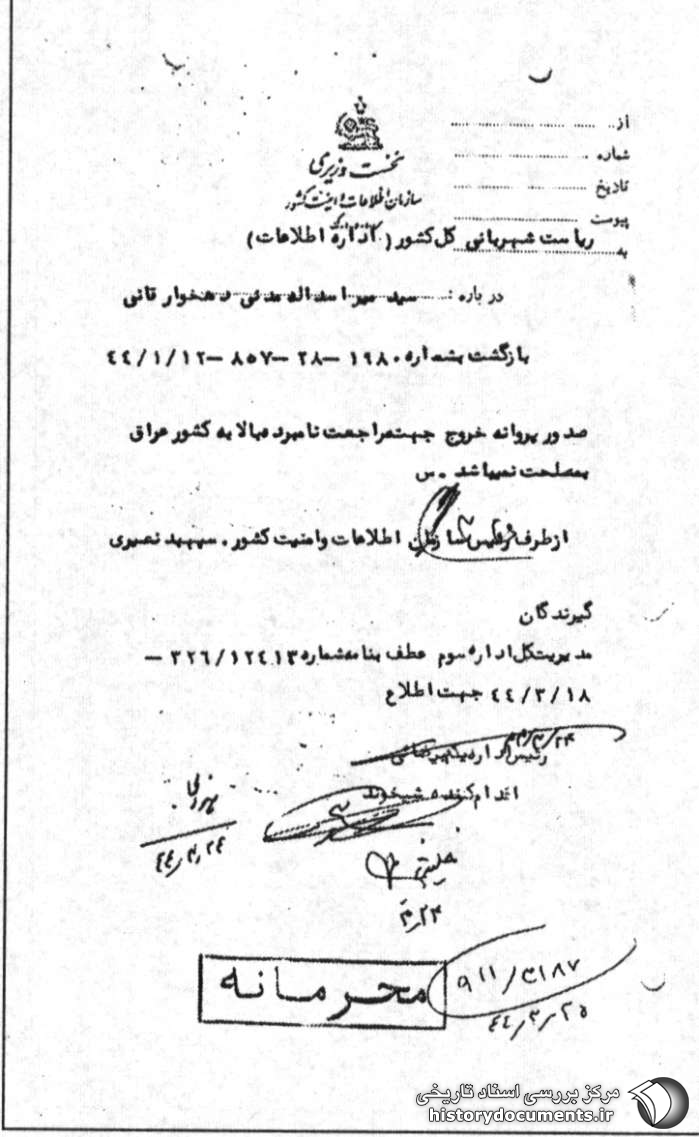 از
شماره
تاریخ
پیوست
به
نخست وزیری
سازمان اطلاعات و امنیت کشور
ریاست شهربانی کل کشور (اداره اطلاعات)
درباره : سید میر اسداله مدنی دهخوارقانی
بازگشت بشماره ۱۹۸۰-۲۸-۸۵۷-۴۴/۱/۱۲
صدور پروانه خروج جهت مراجعت نامبرده بالا به کشور عراق
بمصلحت نمیباشد . س
از طرف رئیس سازمان اطلاعات و امنیت کشور . سپهبد نصیری
گیرندگان
مدیریت کل اداره سوم عطف بنامه شماره ۳۲۶/۱۲۴۱۳ –
۴۴/۳/۱۸ جهت اطلاع
اقدام کننده شیخوند
۴۴/۳/۲۴
۳/۲۴
محرمانه
۹۱۱/۳۱۸۷
۴۴/۳/۲۵
مرکز بررسی اسناد تاریخی
historydocuments.ir